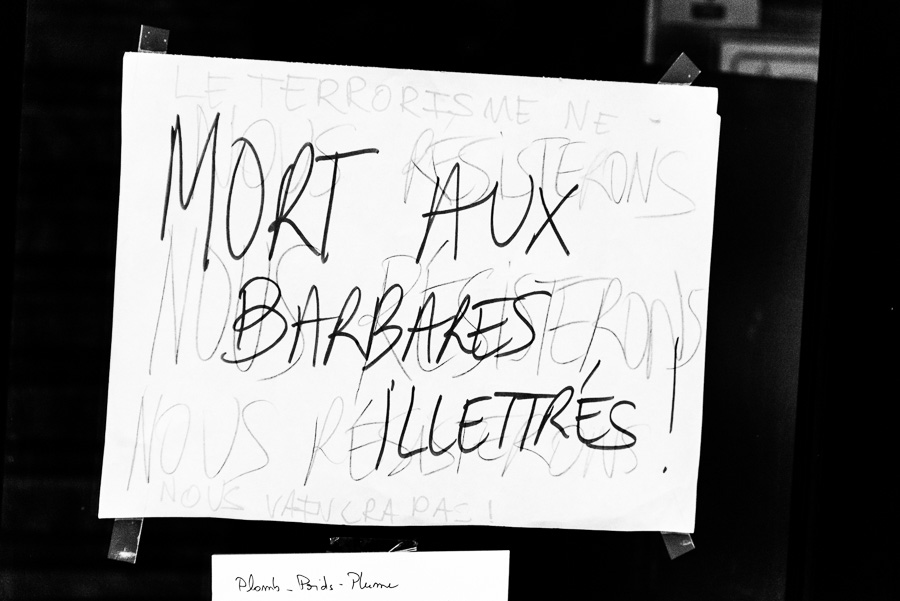 LE TERRORISME NE
NOUS RÉSISTERONS
MORT AUX
NOUS RÉSISTERONS
BARBARES
ILLETTRÉS !
NOUS RÉSISTERONS
NOUS VAINCRA PAS !
Plomb - Poids - Plume